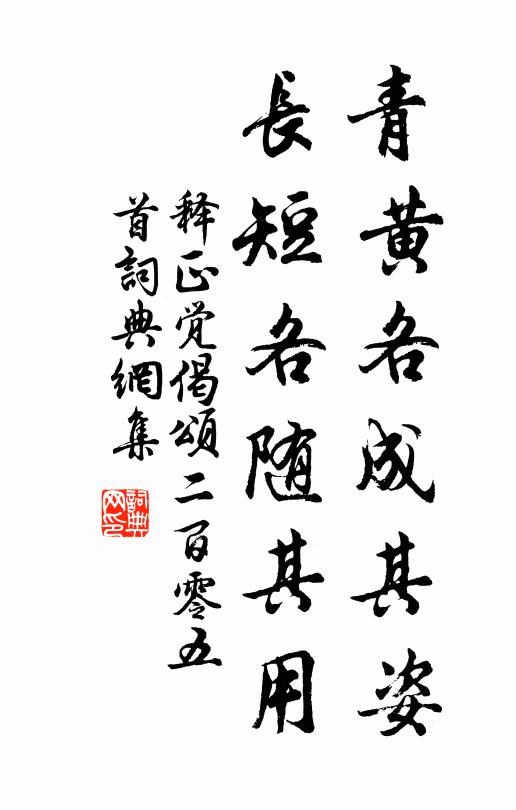 青黄各成其姿
長短各随其用
释正覚偈頌二百零五
首詞典網集
詞典网印